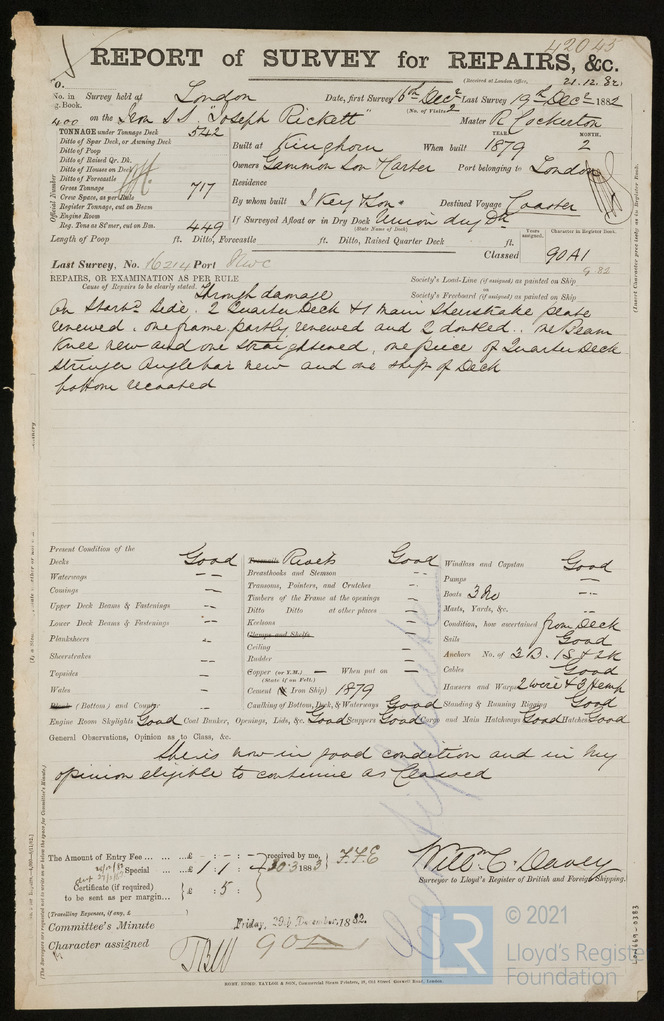 42045
REPORT of SURVEY for REPAIRS, &c.
(Received at London Office, 21.12.82.
o.
No. in
g. Book. Survey held at London Date, first Survey 16th Decr Last Survey 19th Decr 1882
(No. of Visits 2
400 on the Iron S.S. "Joseph Rickett" Master R. Cockerton
TONNAGE under Tonnage Deck 542
Ditto of Spar Deck, or Awning Deck
Ditto of Poop
Ditto of Raised Qr. Dk.
Ditto of Houses on Deck
Ditto of Forecastle
Gross Tonnage 717
Crew Space, as per Rule
Register Tonnage, cut on Beam
Engine Room
Reg. Tons as St'mer, cut on Bm. 449
Official Number
YEAR. MONTH.
Built at Kinghorn When built 1879 2
Owners Gammon Son & Carter Port belonging to London
Residence
By whom built J Key & Sons Destined Voyage Coaster
If Surveyed Afloat or in Dry Dock Union dry Dk
(State Name of Dock)
Years assigned. Character in Register Book.
Length of Poop ft. Ditto, Forecastle ft. Ditto, Raised Quarter Deck ft.
Classed 90A1
9.82
Last Survey, No. 16214 Port Nwc
REPAIRS, OR EXAMINATION AS PER RULE
Cause of Repairs to be clearly stated. Through damage
Society's Load-Line (if assigned) as painted on Ship
or
Society's Freeboard (if assigned) as painted on Ship
On Starbd side. 2 Quarter Deck & 1 main Sheerstrake plate
renewed. one frame partly renewed and 2 doubled. one Beam
Knee new and one straightened, one piece of Quarter Deck
Stringer Angle bar new and one shift of Deck
bottom recoated
Present Condition of the
Decks Good
Waterways --
Comings --
Upper Deck Beams & Fastenings --
Lower Deck Beams & Fastenings --
Planksheers --
Sheerstrakes --
Topsides --
Wales --
(Bottom) and Counter --
Treenails Rivets Good
Breasthooks and Stemson --
Transoms, Pointers, and Crutches --
Timbers of the Frame at the openings --
Ditto Ditto at other places --
Keelsons --
Clamps and Shelfs --
Ceiling --
Rudder --
Copper (or Y.M.) — When put on —
(State if on Felt.)
Cement (if Iron Ship) 1879
Caulking of Bottom, Deck, & Waterways Good
Windlass and Capstan Good
Pumps --
Boats 3 No --
Masts, Yards, &c. --
Condition, how ascertained from Deck
Sails Good
Anchors No. of 3B. 1S & 2K
Cables Good
Hawsers and Warps 2 wire & 3 Hemp
Standing & Running Rigging Good
Engine Room Skylights Good Coal Bunker, Openings, Lids, &c. Good Scuppers Good Cargo and Main Hatchways Good Hatches Good
General Observations, Opinion as to Class, &c.
She is now in good condition and in my
opinion eligible to continue as Classed
The Amount of Entry Fee ... ... ... £ - : - : -
Special ... £ 1 : 1 : - received by me, 20.3.1883 F.F.E
Certificate (if required)
to be sent as per margin... £ : 5 :
(Travelling Expenses, if any, £ )
Willm C. Davey
Surveyor to Lloyd's Register of British and Foreign Shipping.
Committee's Minute Friday, 29th December, 1882.
Character assigned 90A
EIGHT, DUDED. TAYLOR & SON, Commercial Steam Printers,
LR
© 2021
Lloyd's Register
Foundation
LON669-0383